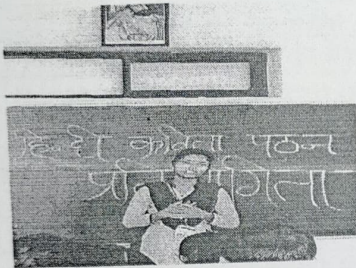 हिन्दी कविता पठन
प्रतियोगिता